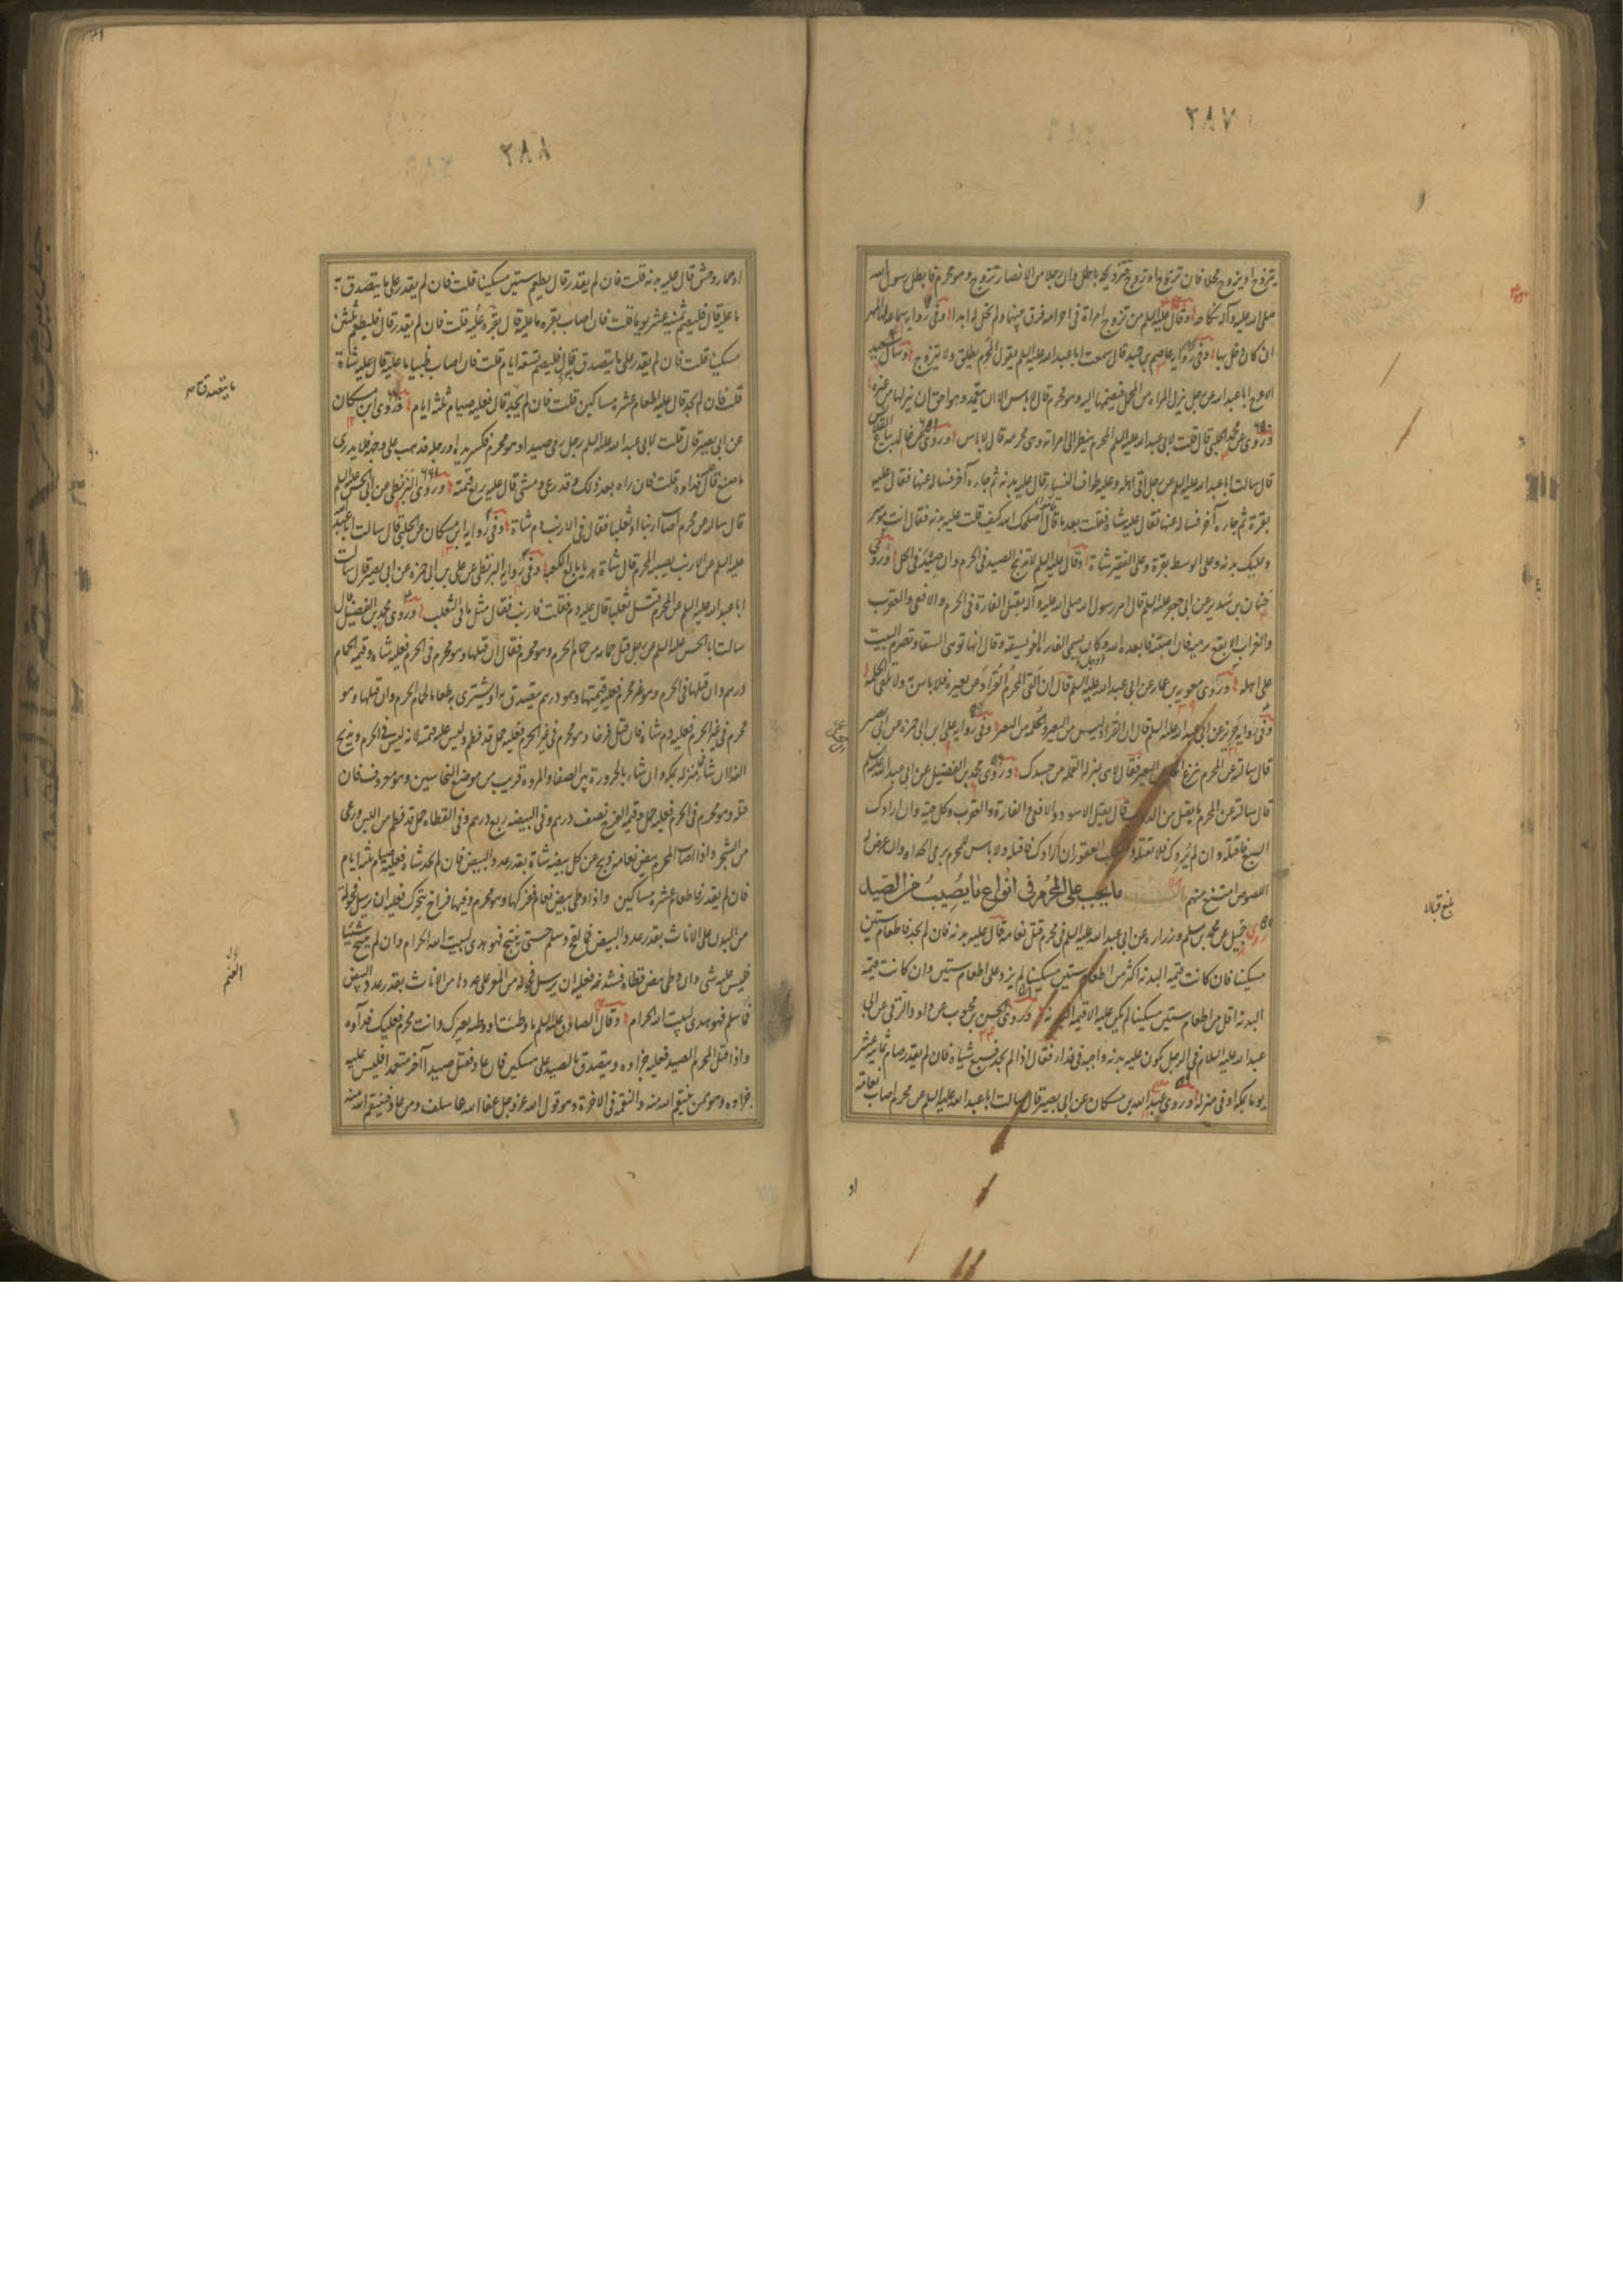 ٣٨٧
يتزوج او يزوج محلا فان تزوج او زوج فتزويجه باطل وان رجلا من الانصار تزوج وهو محرم فابطل رسول الله
صلى الله عليه وآله نكاحه وقال عليه السلم من تزوج امراة في احرامه فرق بينهما ولم تحل له ابدا وفي رواية سماعة لها المهر
ان كان دخل بها وفي رواية عاصم بن حميد قال سمعت ابا عبد الله عليه السلم يقول المحرم يطلق ولا يتزوج وسأل سعيد
الاعرج ابا عبد الله عن رجل ينزل المراة من المحمل فيضمها اليه وهو محرم قال لا باس الا ان يتعمد وهو احق ان ينزلها من غيره
وروى عن محمد الحلبي قال قلت لابي عبد الله عليه السلم المحرم ينظر الى امراته وهي محرمة قال لا باس وروى عن خالد بياع القلانس
قال سالت ابا عبد الله عليه السلم عن رجل اتى اهله وعليه طواف النساء قال عليه بدنة ثم جاءه آخر فساله عنها فقال عليه
بقرة ثم جاءه آخر فساله عنها فقال عليه شاة فقلت بعد ما قاموا اصلحك الله كيف قلت عليه بدنة فقال انت موسر
وعليك بدنة وعلى الوسط بقرة وعلى الفقير شاة وقال عليه السلم لا تذبح الصيد في الحرم وان صيد في الحل وروى
حنان بن سدير عن ابي جعفر عليه السلم قال امر رسول الله صلى الله عليه وآله بقتل الفارة في الحرم والافعى والعقرب
والغراب الابقع ترميه فان اصبته فابعده الله وكان يسمى الفارة الفويسقة وقال انها توهي السقاء وتضرم البيت
على اهله وروى معوية بن عمار عن ابي عبد الله عليه السلم قال ان القى المحرم القراد عن بعيره فلا باس به ولا تلقى الحلمة
وفي رواية حريز عن ابي عبد الله عليه السلم قال ان القراد ليس من البعير والحلمة من البعير وفي رواية علي بن ابي حمزة عن ابي بصير
قال سالته عن المحرم ينزع الحلمة عن البعير فقال لا هي بمنزلة القملة من جسدك وروى محمد بن الفضيل عن ابي عبد الله عليه السلم
قال سالته عن المحرم ما يقتل من الدواب قال يقتل الاسود والافعى والفارة والعقرب وكل حية وان ارادك
السبع فاقتله وان لم يردك فلا تقتله والكلب العقور ان ارادك فاقتله ولا باس للمحرم ان يرمي الحداة وان عرض له
اللصوص امتنع منهم باب ما يجب على المحرم في انواع ما يصيب من الصيد
روى جميل عن محمد بن مسلم وزرارة عن ابي عبد الله عليه السلم في محرم قتل نعامة قال عليه بدنة فان لم يجد فاطعام ستين
مسكينا فان كانت قيمة البدنة اكثر من اطعام ستين مسكينا لم يزد على اطعام ستين وان كانت قيمة
البدنة اقل من اطعام ستين مسكينا لم يكن عليه الا قيمة البدنة وروى الحسن بن محبوب عن داود الرقي عن ابي
عبد الله عليه السلام في الرجل يكون عليه بدنة واجبة في فداء فقال اذا لم يجد فسبع شياه فان لم يقدر صام ثمانية عشر
يوما بمكة او في منزله وروى عبد الله بن مسكان عن ابي بصير قال سالت ابا عبد الله عليه السلم عن محرم اصاب نعامة
او
بلغ قبالا
٣٨٨
او حمار وحش قال عليه بدنة قلت فان لم يقدر قال يطعم ستين مسكينا قلت فان لم يقدر على ما يتصدق به
ما عليه قال فليصم ثمنية عشر يوما قلت فان اصاب بقرة ما عليه قال بقرة عليه قلت فان لم يقدر قال فليطعم ثلثين
مسكينا قلت فان لم يقدر على ما يتصدق قال فليصم تسعة ايام قلت فان اصاب ظبيا ما عليه قال عليه شاة
قلت فان لم يجد قال عليه اطعام عشرة مساكين قلت فان لم يجد قال فعليه صيام ثلثة ايام وروى ابن مسكان
عن ابي بصير قال قلت لابي عبد الله عليه السلم رجل رمى صيدا وهو محرم فكسر يده او رجله فذهب على وجهه فلا يدري
ما صنع قال عليه فداؤه قلت فان راه بعد ذلك وقد رعى ومشى قال عليه ربع قيمته وروى البزنطي عن ابي الحسن عليه السلم
قال ساله عن محرم اصاب ارنبا او ثعلبا فقال في الارنب دم شاة وفي رواية ابن مسكان عن الحلبي قال سالت ابا عبد الله
عليه السلم عن الارنب يصيبه المحرم قال شاة هديا بالغ الكعبة وفي رواية البزنطي عن علي بن ابي حمزة عن ابي بصير قال سالت
ابا عبد الله عليه السلم عن محرم قتل ثعلبا قال عليه دم فقلت فارنب فقال مثل ما في الثعلب وروى محمد بن الفضيل قال
سالت ابا الحسن عليه السلم عن رجل قتل حمامة من حمام الحرم وهو محرم فقال ان قتلها وهو محرم في الحرم فعليه شاة وقيمة الحمام
درهم وان قتلها في الحرم وهو غير محرم فعليه قيمتها وهو درهم يتصدق به او يشتري به طعاما لحمام الحرم وان قتلها وهو
محرم في غير الحرم فعليه دم شاة فان قتل فرخا وهو محرم في غير الحرم فعليه حمل قد فطم وليس عليه قيمته لانه ليس في الحرم ويذبح
الفداء ان شاء في منزله بمكة وان شاء بالحزورة بين الصفا والمروة قريب من موضع النخاسين وهو معروف فان
قتله وهو محرم في الحرم فعليه حمل وقيمة الفرخ نصف درهم وفي البيضة ربع درهم وفي القطاة حمل قد فطم من اللبن ورعى
من الشجر واذا اصاب المحرم بيض نعامة ذبح عن كل بيضة شاة بقدر عدد البيض فان لم يجد شاة فعليه صيام ثلثة ايام
فان لم يقدر فاطعام عشرة مساكين واذا وطى بيض نعام ففدغها وهو محرم وفيها فراخ تتحرك فعليه ان يرسل فحولة
من البدن على الاناث بقدر عدد البيض فما لقح وسلم حتى ينتج فهو هدي لبيت الله الحرام وان لم ينتج شيئا
فليس عليه شي وان وطى بيض قطاة فشدخه فعليه ان يرسل فحولة من المعز على عددها من الاناث بقدر عدد البيض
فما سلم فهو هدي لبيت الله الحرام وقال الصادق عليه السلم ما وطئت او وطئه بعيرك وانت محرم فعليك فداؤه
واذا قتل المحرم الصيد فعليه جزاؤه ويتصدق بالصيد على مسكين فان عاد فقتل صيدا آخر متعمدا فليس عليه
جزاؤه وهو ممن ينتقم الله منه والنقمة في الاخرة وهو قول الله عز وجل عفا الله عما سلف ومن عاد فينتقم الله منه
الغنم